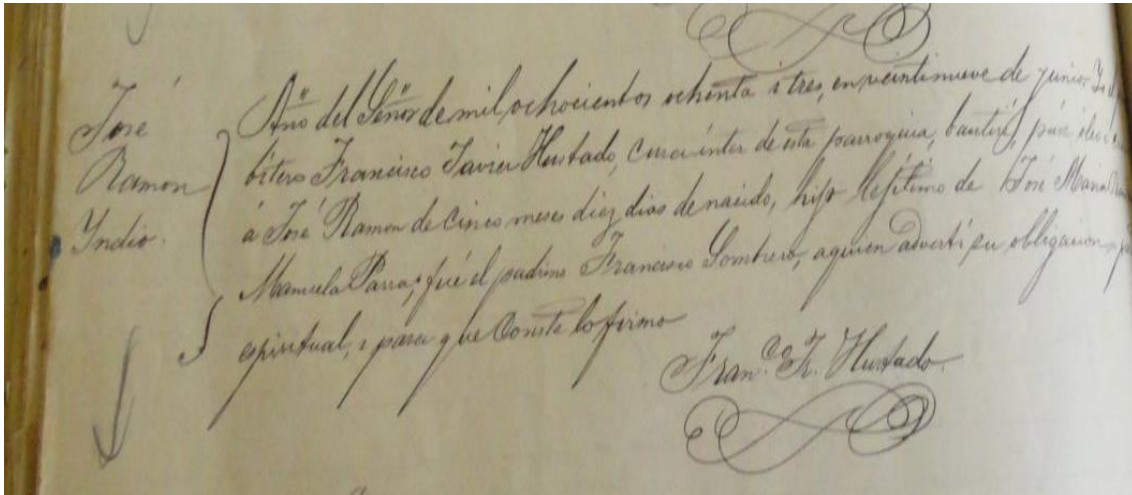 José
Ramon
Yndio.
Año del Señor de mil ochocientos ochenta i tres, en veintinueve de junio. Yo el
bítero Francisco Javier Hurtado, cura inter de esta parroquia, bauticé, puse óleo
á José Ramon de cinco meses diez dias de nacido, hijo lejítimo de José Maria
Manuela Parra; fué el padrino Francisco Sombrero, aquien advertí su obligacion
espiritual, i para que Conste lo firmo
Fran.co J. Hurtado.